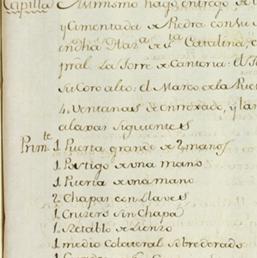 Capilla Asimismo hago entrego de
y Cimentada de Piedra con su
ha Haz.ª de S.ta Catalina,
pral. La Torre de Cantería: El
su Coro alto: El Marco de la Pue
4. Ventanas de enrrexado, y lan
alaxas siguientes
Prim.te 1 Puerta grande de 2 manos
1 Postigo de una mano
1 Puerta de una mano
2 Chapas con llaves
1 Cruzero sin Chapa
1 Retablo de Lienzo
1 medio Colateral sobredorado